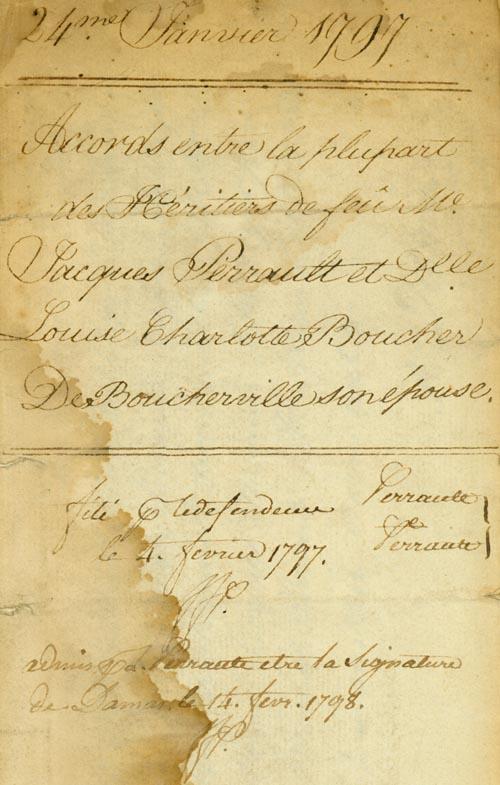 24me. Janvier 1797
Accords entre la plupart
des Héritiers de feû Mr.
Jacques Perrault et Dlle
Louise Charlotte Boucher
De Boucherville son épouse.
filé p le defendeur Perrault
le 4. fevrier 1797. Perrault
admis p Perrault etre la signature
de le 14. fevr. 1798.